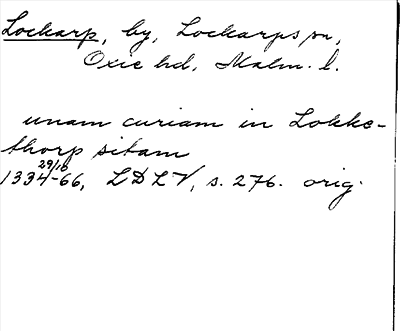 Lockarp, by, Lockarps sn,
Oxie hd, Malm. l.
unam curiam in Lokke-
thorp sitam
29/10
1334-66, LDLV, s. 276. orig.